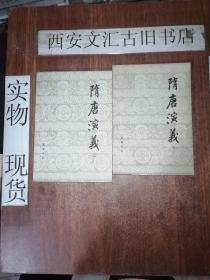 西安文汇古旧书店
实物
现货
隋唐演義
隋唐演義